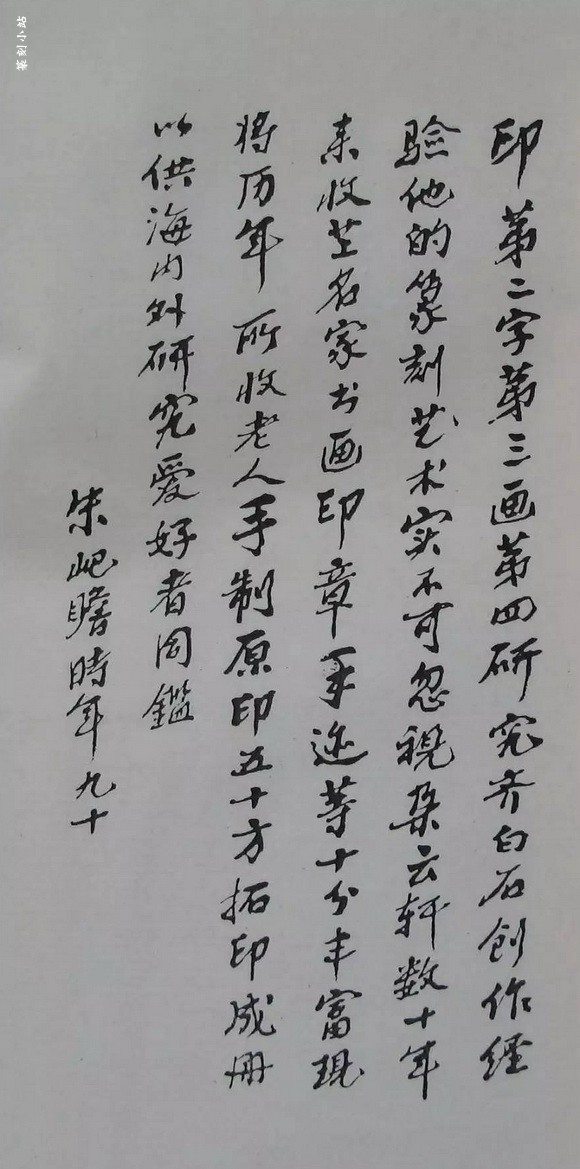 篆刻小站
印第二字第三画第四研究齐白石创作经
验他的篆刻艺术实不可忽视朵云轩数十年
来收集名家书画印章手迹等十分丰富现
将历年所收老人手制原印五十方拓印成册
以供海内外研究爱好者同鑑
朱屺瞻時年九十